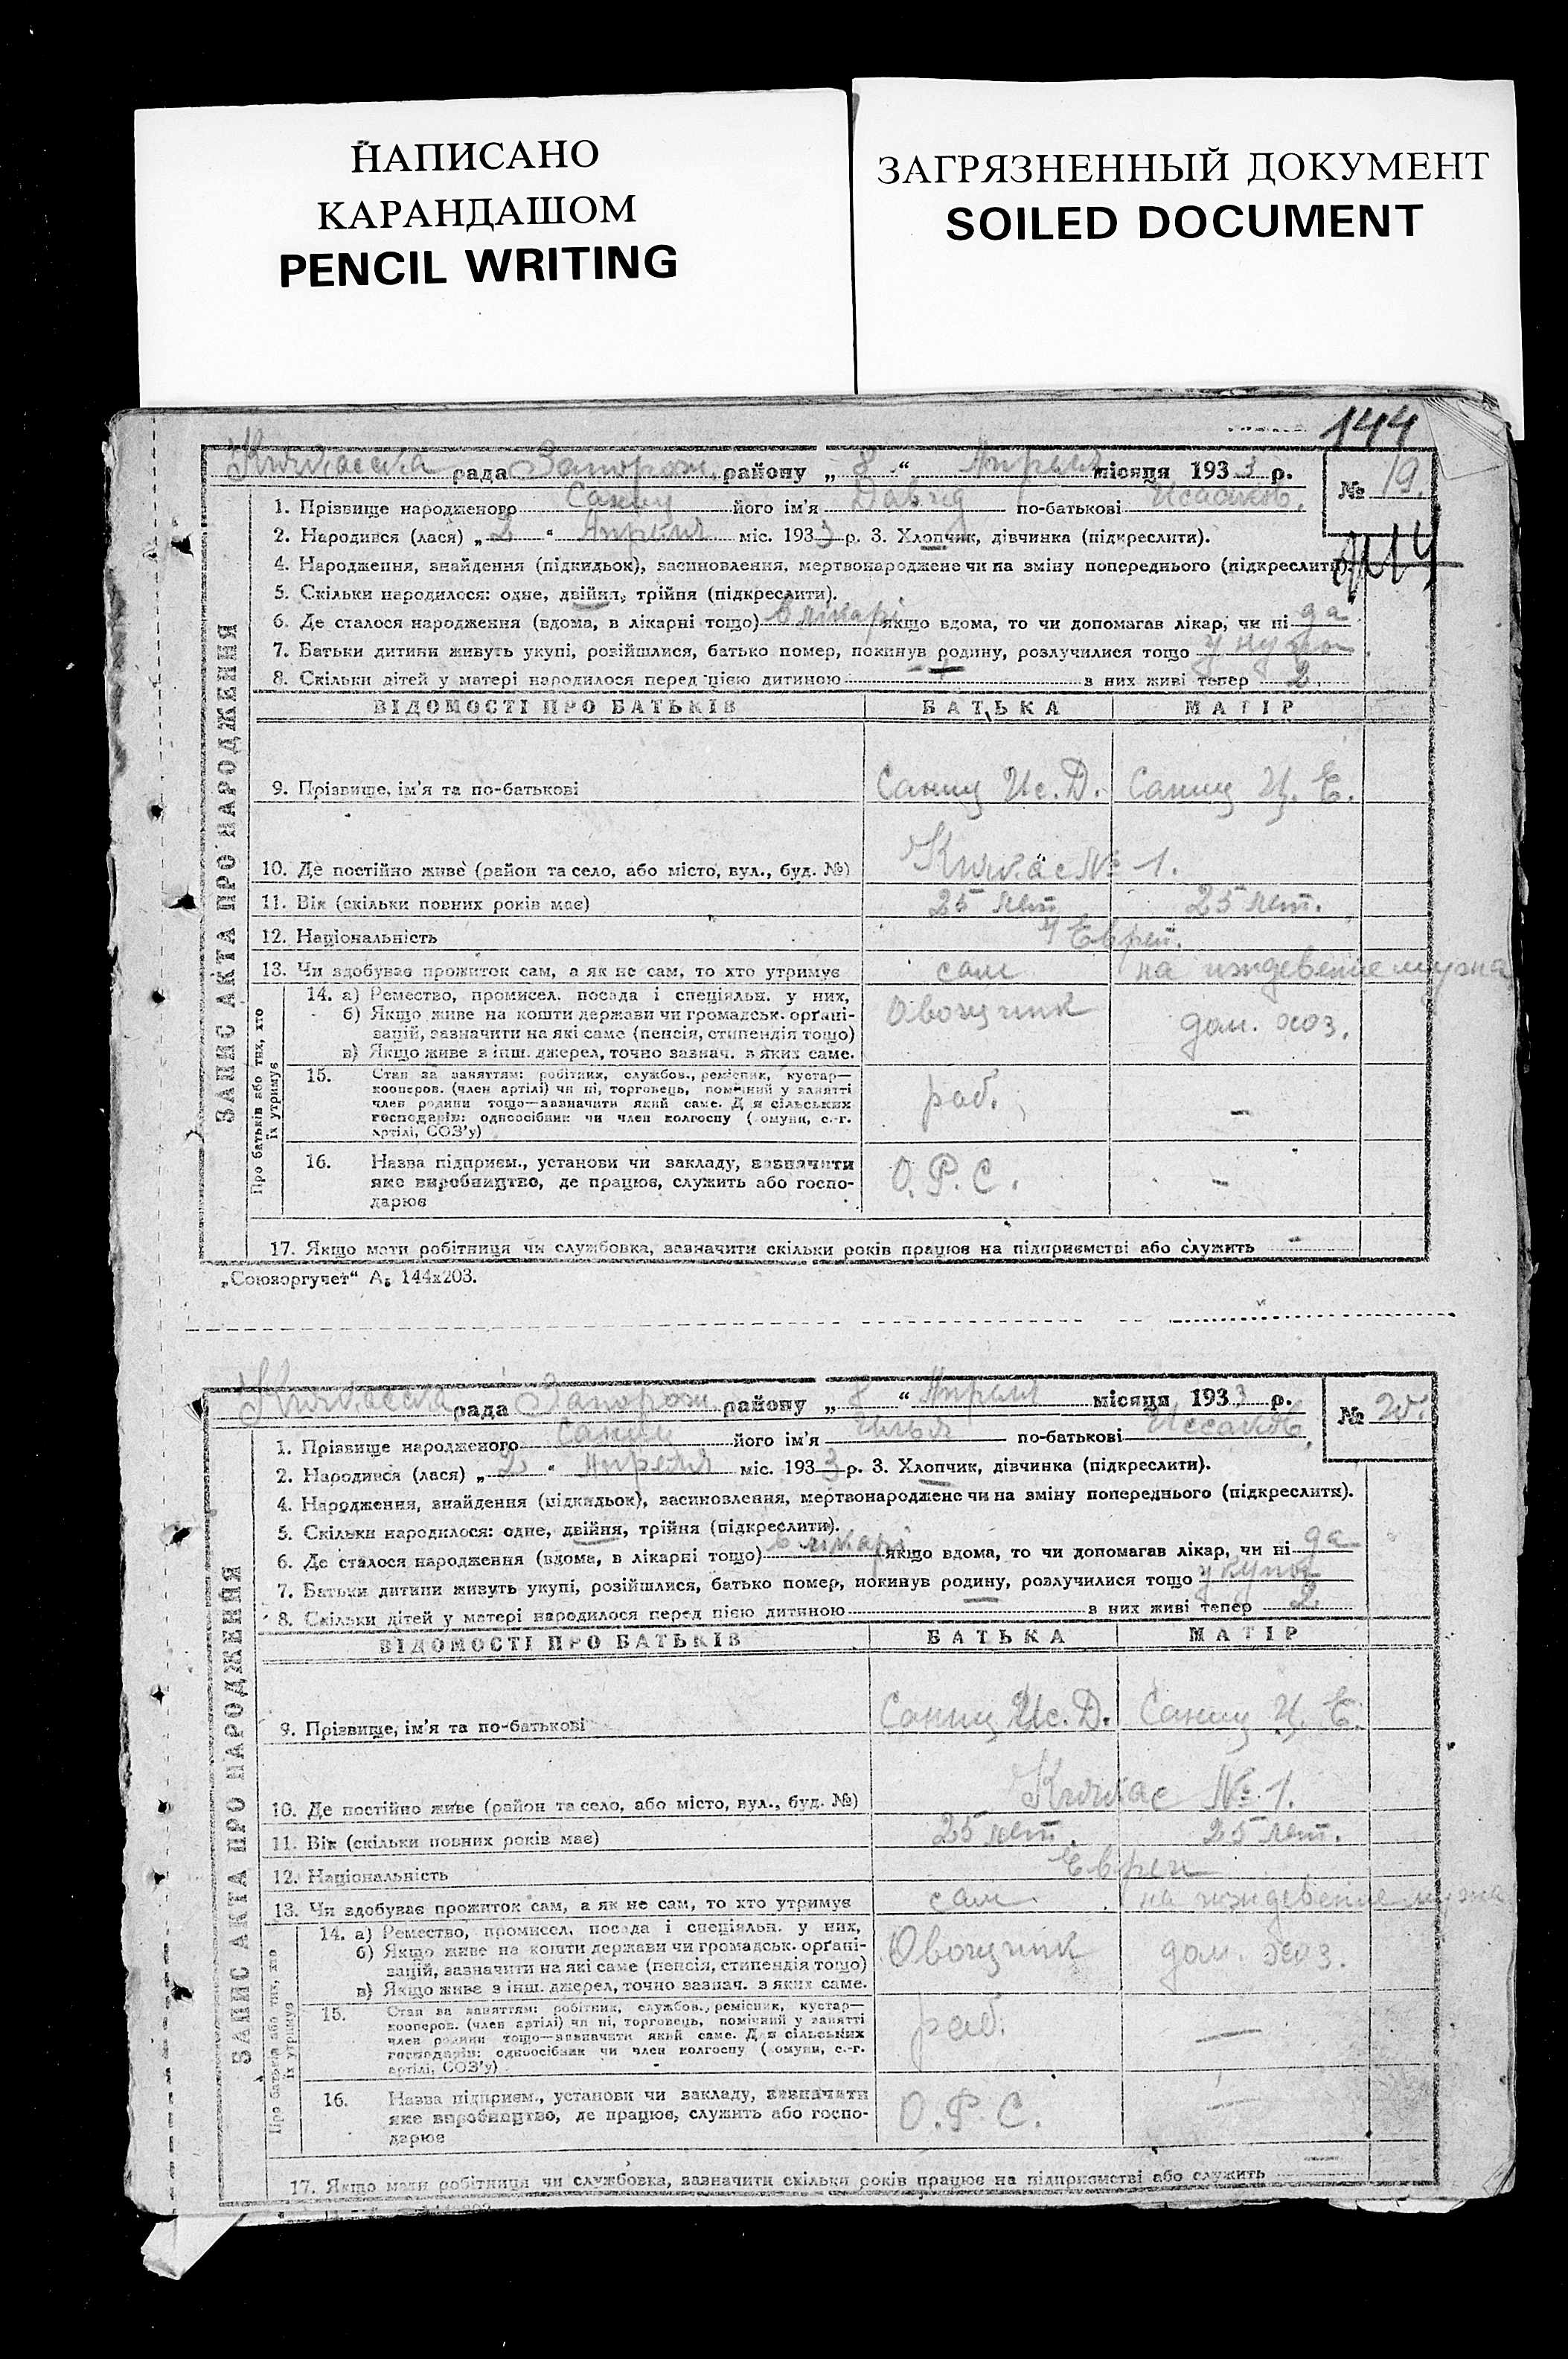 НАПИСАНО
КАРАНДАШОМ
PENCIL WRITING
ЗАГРЯЗНЕННЫЙ ДОКУМЕНТ
SOILED DOCUMENT
144
рада Запорож. району „ 8 “ Апреля місяця 193 3 р.
№ 19.
1. Прізвище народженого його ім'я Давид по-батькові Исааков.
2. Народився (лася) „ 2 “ Апреля міс. 193 3 р. 3. Хлопчик, дівчинка (підкреслити).
4. Народження, знайдення (підкидьок), засиновлення, мертвонароджене чи на зміну попереднього (підкреслити).
5. Скільки народилося: одне, двійня, трійня (підкреслити).
6. Де сталося народження (вдома, в лікарні тощо) в лікарі якщо вдома, то чи допомагав лікар, чи ні да
7. Батьки дитини живуть укупі, розійшлися, батько помер, покинув родину, розлучилися тощо
8. Скільки дітей у матері народилося перед цією дитиною — з них живі тепер 2.
ВІДОМОСТІ ПРО БАТЬКІВ БАТЬКА МАТІР
ЗАПИС АКТА ПРО НАРОДЖЕННЯ
9. Прізвище, ім'я та по-батькові Ис. Д. Ц. Е.
10. Де постійно живе (район та село, або місто, вул., буд. №) Кичкас № 1.
11. Вік (скільки повних років має) 25 лет 25 лет.
12. Національність Евреи.
13. Чи здобуває прожиток сам, а як не сам, то хто утримує сам на иждевение мужа
Про батьків або тих, хто їх утримує
14. а) Ремество, промисел. посада і спеціяльн. у них, Овощник дом. хоз.
б) Якщо живе на кошти держави чи громадськ. органі-
зацій, зазначити на які саме (пенсія, стипендія тощо)
в) Якщо живе з інш. джерел, точно зазнач. з яких саме.
15. Стан за заняттям: робітник, службов., ремісник, кустар— раб. —
кооперов. (член артілі) чи ні, торговець, помічний у занятті
член родини тощо—зазначити який саме. Для сільських
господарів: одноосібник чи член колгоспу (комуни, с.-г.
артілі, СОЗ'у)
16. Назва підприєм., установи чи закладу, зазначити О.Р.С. —
яке виробництво, де працює, служить або госпо-
дарює
17. Якщо мати робітниця чи службовка, зазначити скільки років працює на підприємстві або служить —
„Союзоргучет“ А5 144х203.
рада Запорож. району „ 8 “ Апреля місяця 193 3 р.
№ 20.
1. Прізвище народженого його ім'я Илья по-батькові Иссаков.
2. Народився (лася) „ 2 “ Апреля міс. 193 3 р. 3. Хлопчик, дівчинка (підкреслити).
4. Народження, знайдення (підкидьок), засиновлення, мертвонароджене чи на зміну попереднього (підкреслити).
5. Скільки народилося: одне, двійня, трійня (підкреслити).
6. Де сталося народження (вдома, в лікарні тощо) в лікарі якщо вдома, то чи допомагав лікар, чи ні да
7. Батьки дитини живуть укупі, розійшлися, батько помер, покинув родину, розлучилися тощо укупи
8. Скільки дітей у матері народилося перед цією дитиною — з них живі тепер 2.
ВІДОМОСТІ ПРО БАТЬКІВ БАТЬКА МАТІР
ЗАПИС АКТА ПРО НАРОДЖЕННЯ
9. Прізвище, ім'я та по-батькові Ис. Д. Ц. Е.
10. Де постійно живе (район та село, або місто, вул., буд. №) Кичкас № 1.
11. Вік (скільки повних років має) 25 лет. 25 лет.
12. Національність Евреи
13. Чи здобуває прожиток сам, а як не сам, то хто утримує сам на иждевение мужа
Про батьків або тих, хто їх утримує
14. а) Ремество, промисел. посада і спеціяльн. у них, Овощник дом. хоз.
б) Якщо живе на кошти держави чи громадськ. органі-
зацій, зазначити на які саме (пенсія, стипендія тощо)
в) Якщо живе з інш. джерел, точно зазнач. з яких саме.
15. Стан за заняттям: робітник, службов., ремісник, кустар— раб. —
кооперов. (член артілі) чи ні, торговець, помічний у занятті
член родини тощо—зазначити який саме. Для сільських
господарів: одноосібник чи член колгоспу (комуни, с.-г.
артілі, СОЗ'у)
16. Назва підприєм., установи чи закладу, зазначити О.Р.С. —
яке виробництво, де працює, служить або госпо-
дарює
17. Якщо мати робітниця чи службовка, зазначити скільки років працює на підприємстві або служить —